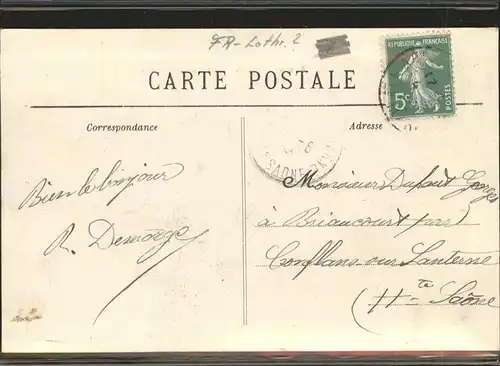 FR-Lothr. 2
REPUBLIQUE FRANÇAISE
5c
POSTES
CARTE POSTALE
Correspondance
Adresse
Bien le bonjour
R. Demorge
Monsieur Dupont Georges
à Briaucourt par
Conflans-sur-Lanterne
(Hte Saône